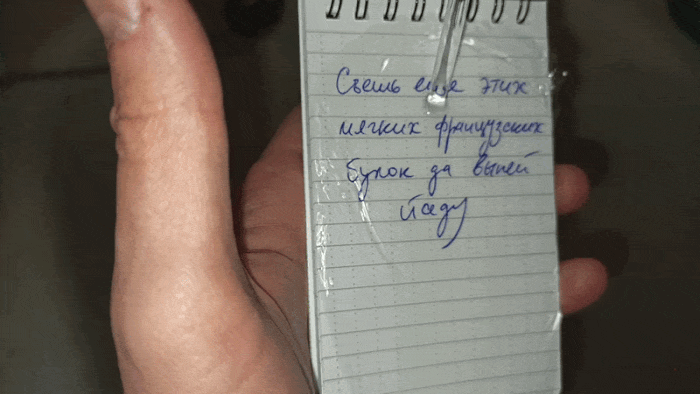 Съешь еще этих
мягких французских
булок да выпей
йаду